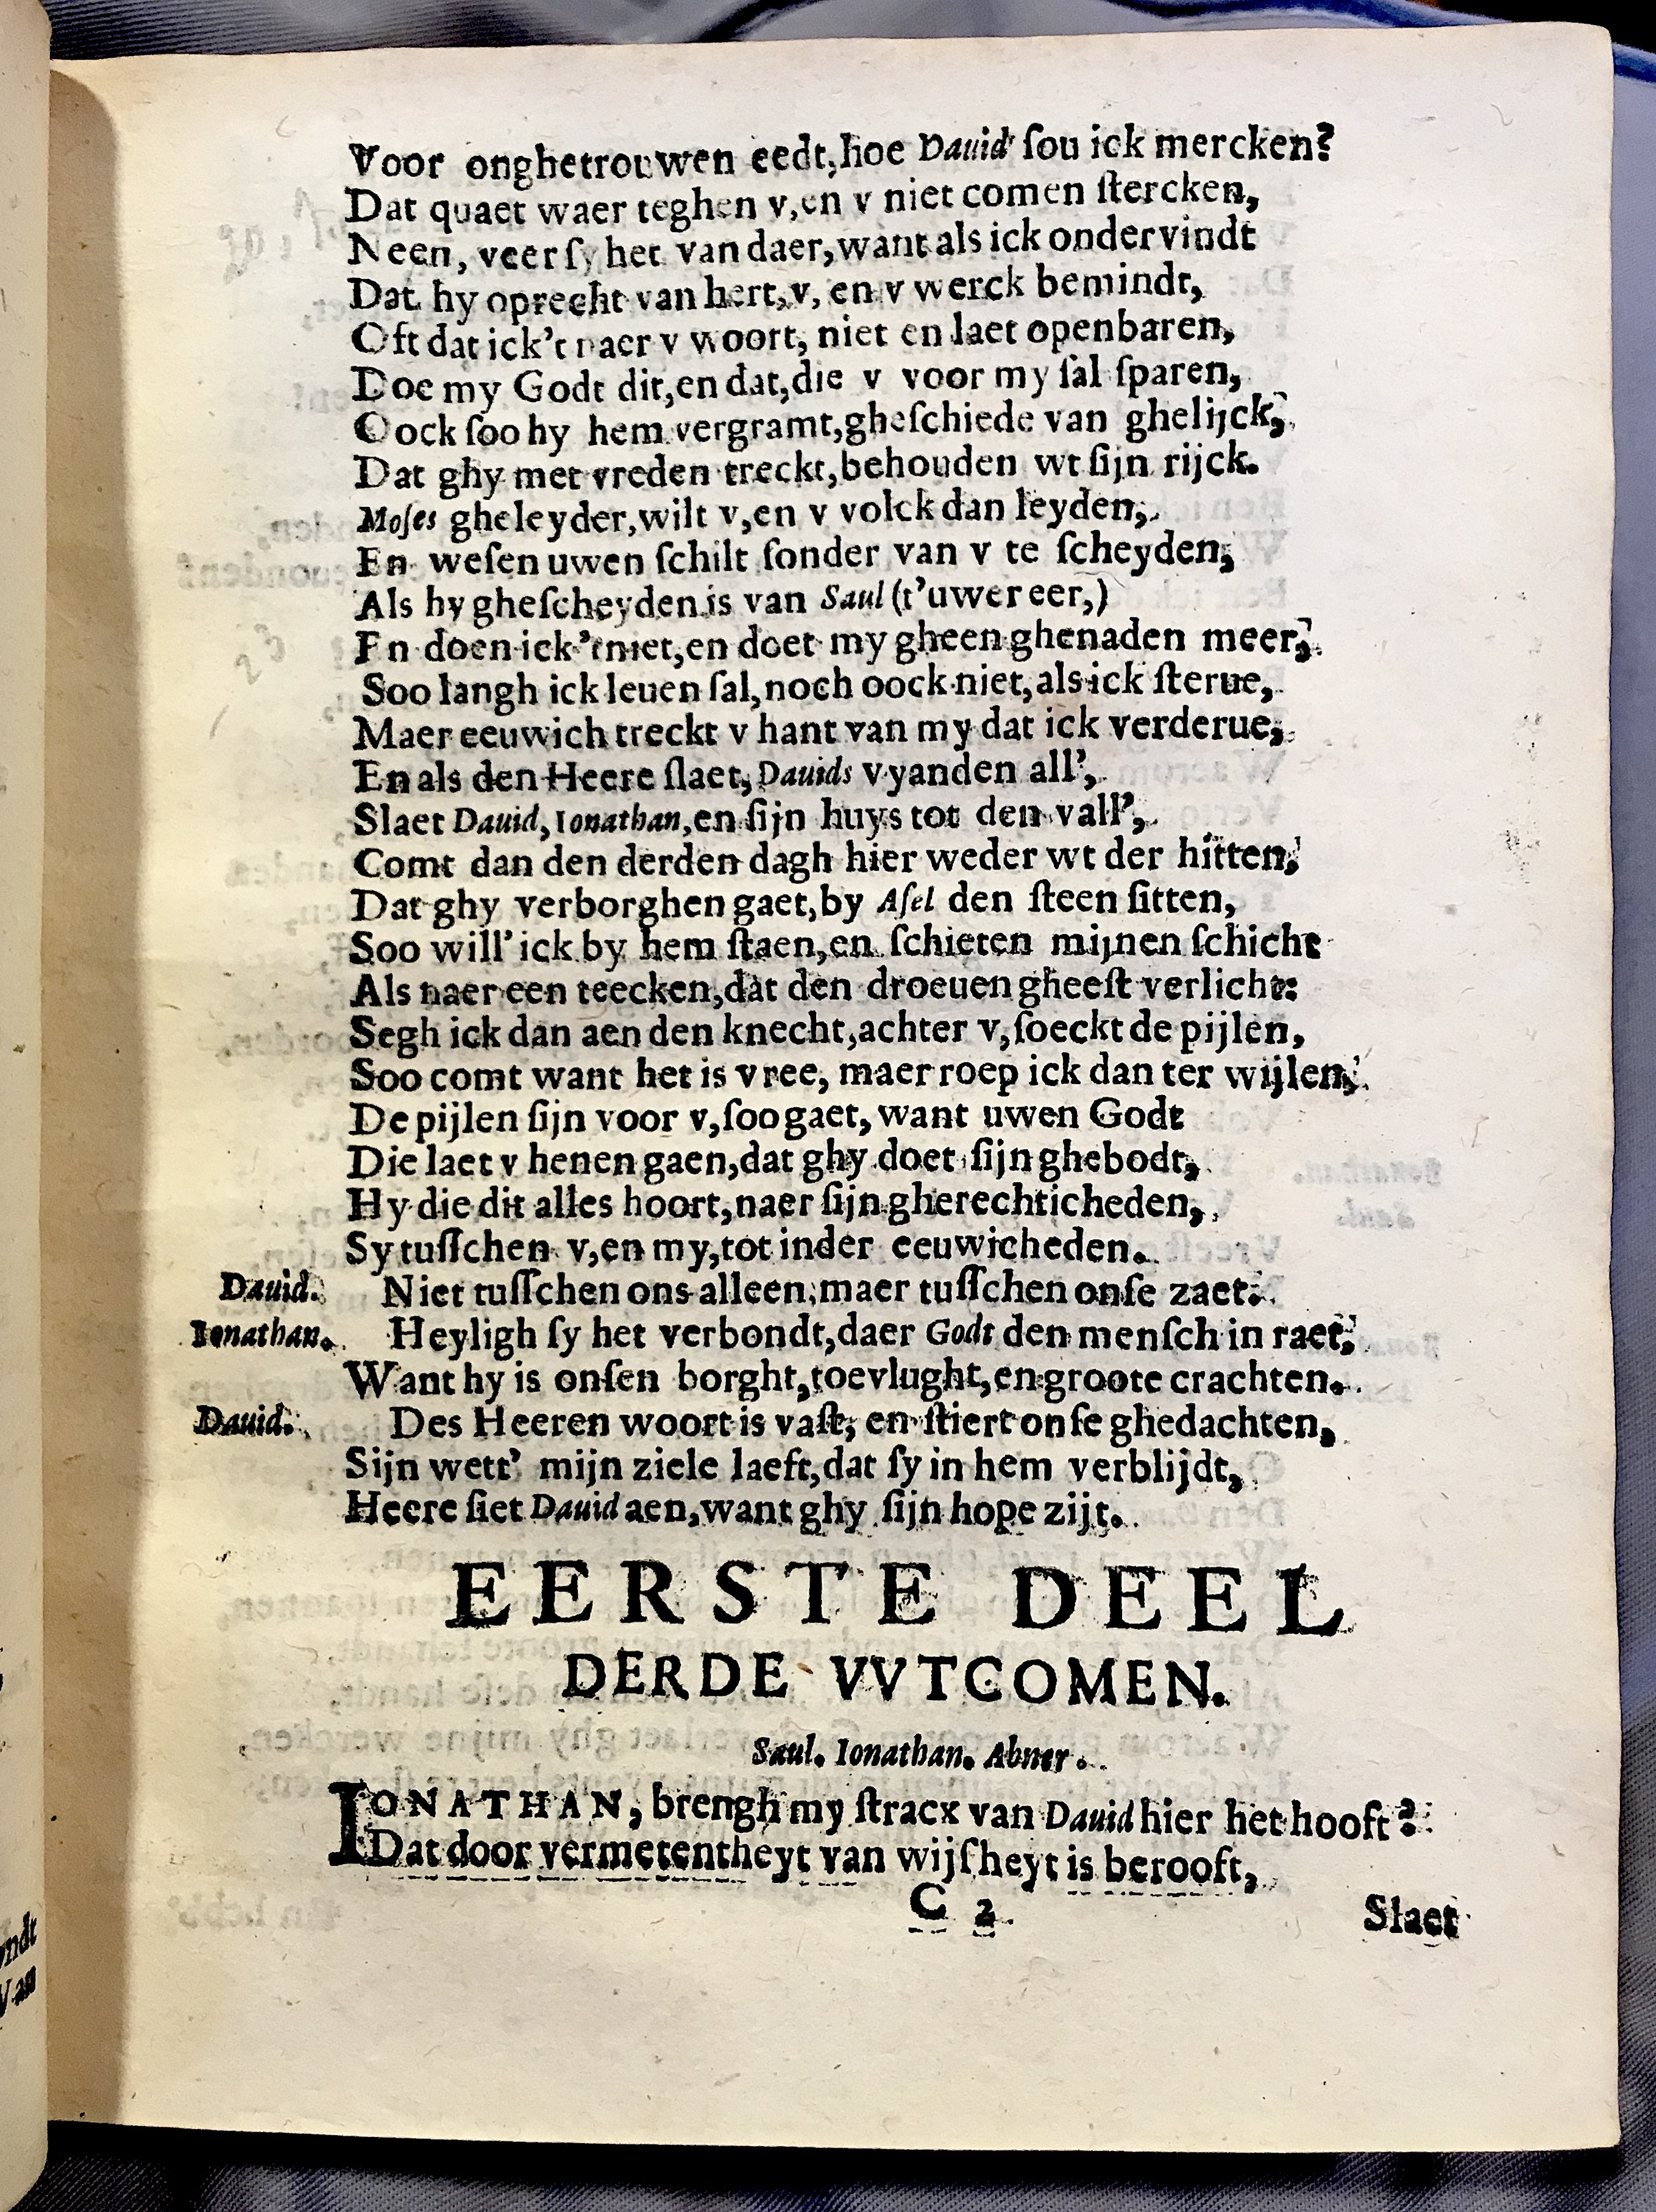 Voor onghetrouwen eedt, hoe Dauid ſou ick mercken?
Dat quaet waer teghen v, en v niet comen ſtercken,
Neen, veer ſy het van daer, want als ick ondervindt
Dat hy oprecht van hert, v, en v werck bemindt,
Oft dat ick't naer v woort, niet en laet openbaren,
Doe my Godt dit, en dat, die v voor my ſal ſparen,
Oock ſoo hy hem vergramt, gheſchiede van ghelijck,
Dat ghy met vreden treckt, behouden wt ſijn rijck.
Moſes gheleyder, wilt v, en v volck dan leyden,
En weſen uwen ſchilt ſonder van v te ſcheyden,
Als hy gheſcheyden is van Saul (t'uwer eer,)
En doen ick 't niet, en doet my gheen ghenaden meer,
Soo langh ick leuen ſal, noch oock niet, als ick ſterue,
Maer eeuwich treckt v hant van my dat ick verderue,
En als den Heere ſlaet, Dauids vyanden all',
Slaet Dauid, Ionathan, en ſijn huys tot den vall',
Comt dan den derden dagh hier weder wt der hitten,
Dat ghy verborghen gaet, by Aſel den ſteen ſitten,
Soo will' ick by hem ſtaen, en ſchieten mijnen ſchicht
Als naer een teecken, dat den droeuen gheeſt verlicht:
Segh ick dan aen den knecht, achter v, ſoeckt de pijlen,
Soo comt want het is vree, maer roep ick dan ter wijlen,
De pijlen ſijn voor v, ſoo gaet, want uwen Godt
Die laet v henen gaen, dat ghy doet ſijn ghebodt,
Hy die dit alles hoort, naer ſijn gherechticheden,
Sy tuſſchen v, en my, tot inder eeuwicheden.
Dauid. Niet tuſſchen ons alleen, maer tuſſchen onſe zaet.
Ionathan. Heyligh ſy het verbondt, daer Godt den menſch in raet,
Want hy is onſen borght, toevlught, en groote crachten.
Dauid. Des Heeren woort is vaſt, en ſtiert onſe ghedachten,
Sijn wett' mijn ziele laeft, dat ſy in hem verblijdt,
Heere ſiet Dauid aen, want ghy ſijn hope zijt.
EERSTE DEEL
DERDE VVTCOMEN.
Saul. Ionathan. Abner.
IONATHAN, brengh my ſtracx van Dauid hier het hooft?
Dat door vermetentheyt van wijſheyt is berooft,
C 2
Slaet